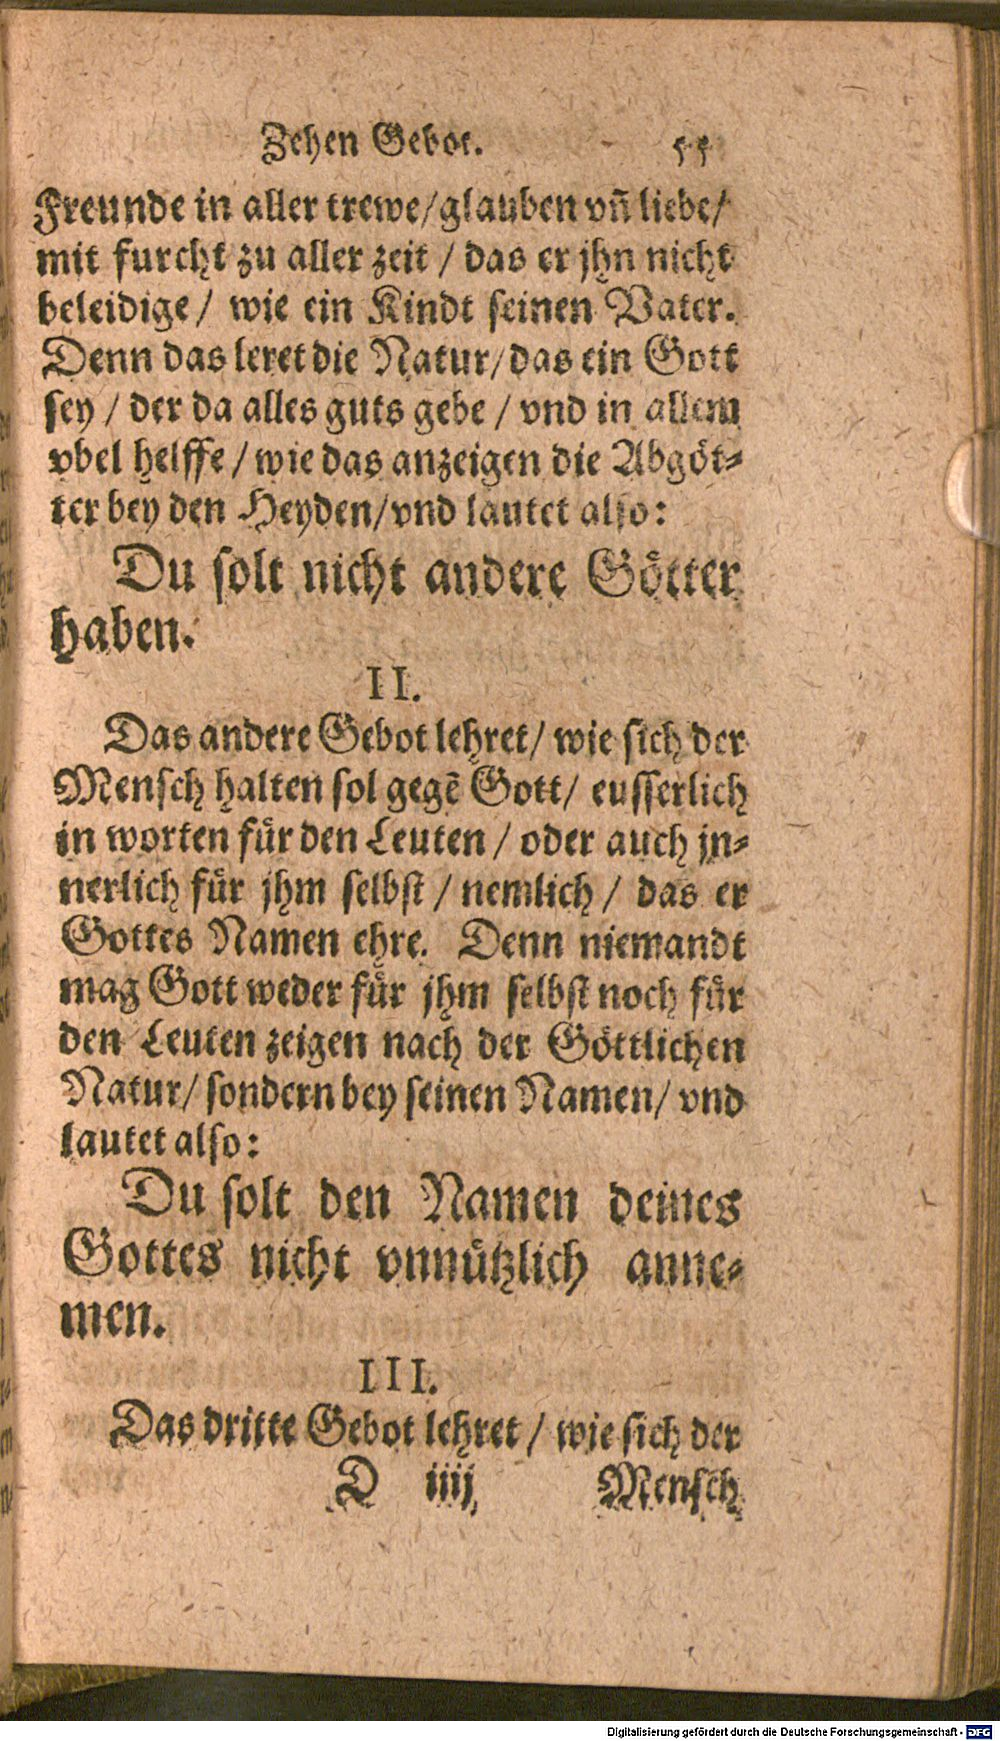 Zehen Gebot. 55
Freunde in aller trewe/glauben vñ liebe/
mit furcht zu aller zeit / das er jhn nicht
beleidige / wie ein Kindt seinen Vater.
Denn das leret die Natur/das ein Gott
sey / der da alles guts gebe / vnd in allem
vbel helffe / wie das anzeigen die Abgöt-
ter bey den Heyden/vnd lautet also:
Du solt nicht andere Götter
haben.
II.
Das andere Gebot lehret/ wie sich der
Mensch halten sol gegē Gott/ eusserlich
in worten für den Leuten / oder auch jn-
nerlich für jhm selbst / nemlich / das er
Gottes Namen ehre. Denn niemandt
mag Gott weder für jhm selbst noch für
den Leuten zeigen nach der Göttlichen
Natur/ sondern bey seinen Namen/ vnd
lautet also:
Du solt den Namen deines
Gottes nicht vnnützlich anne-
men.
III.
Das dritte Gebot lehret / wie sich der
D iiij Mensch
Digitalisierung gefördert durch die Deutsche Forschungsgemeinschaft - DFG